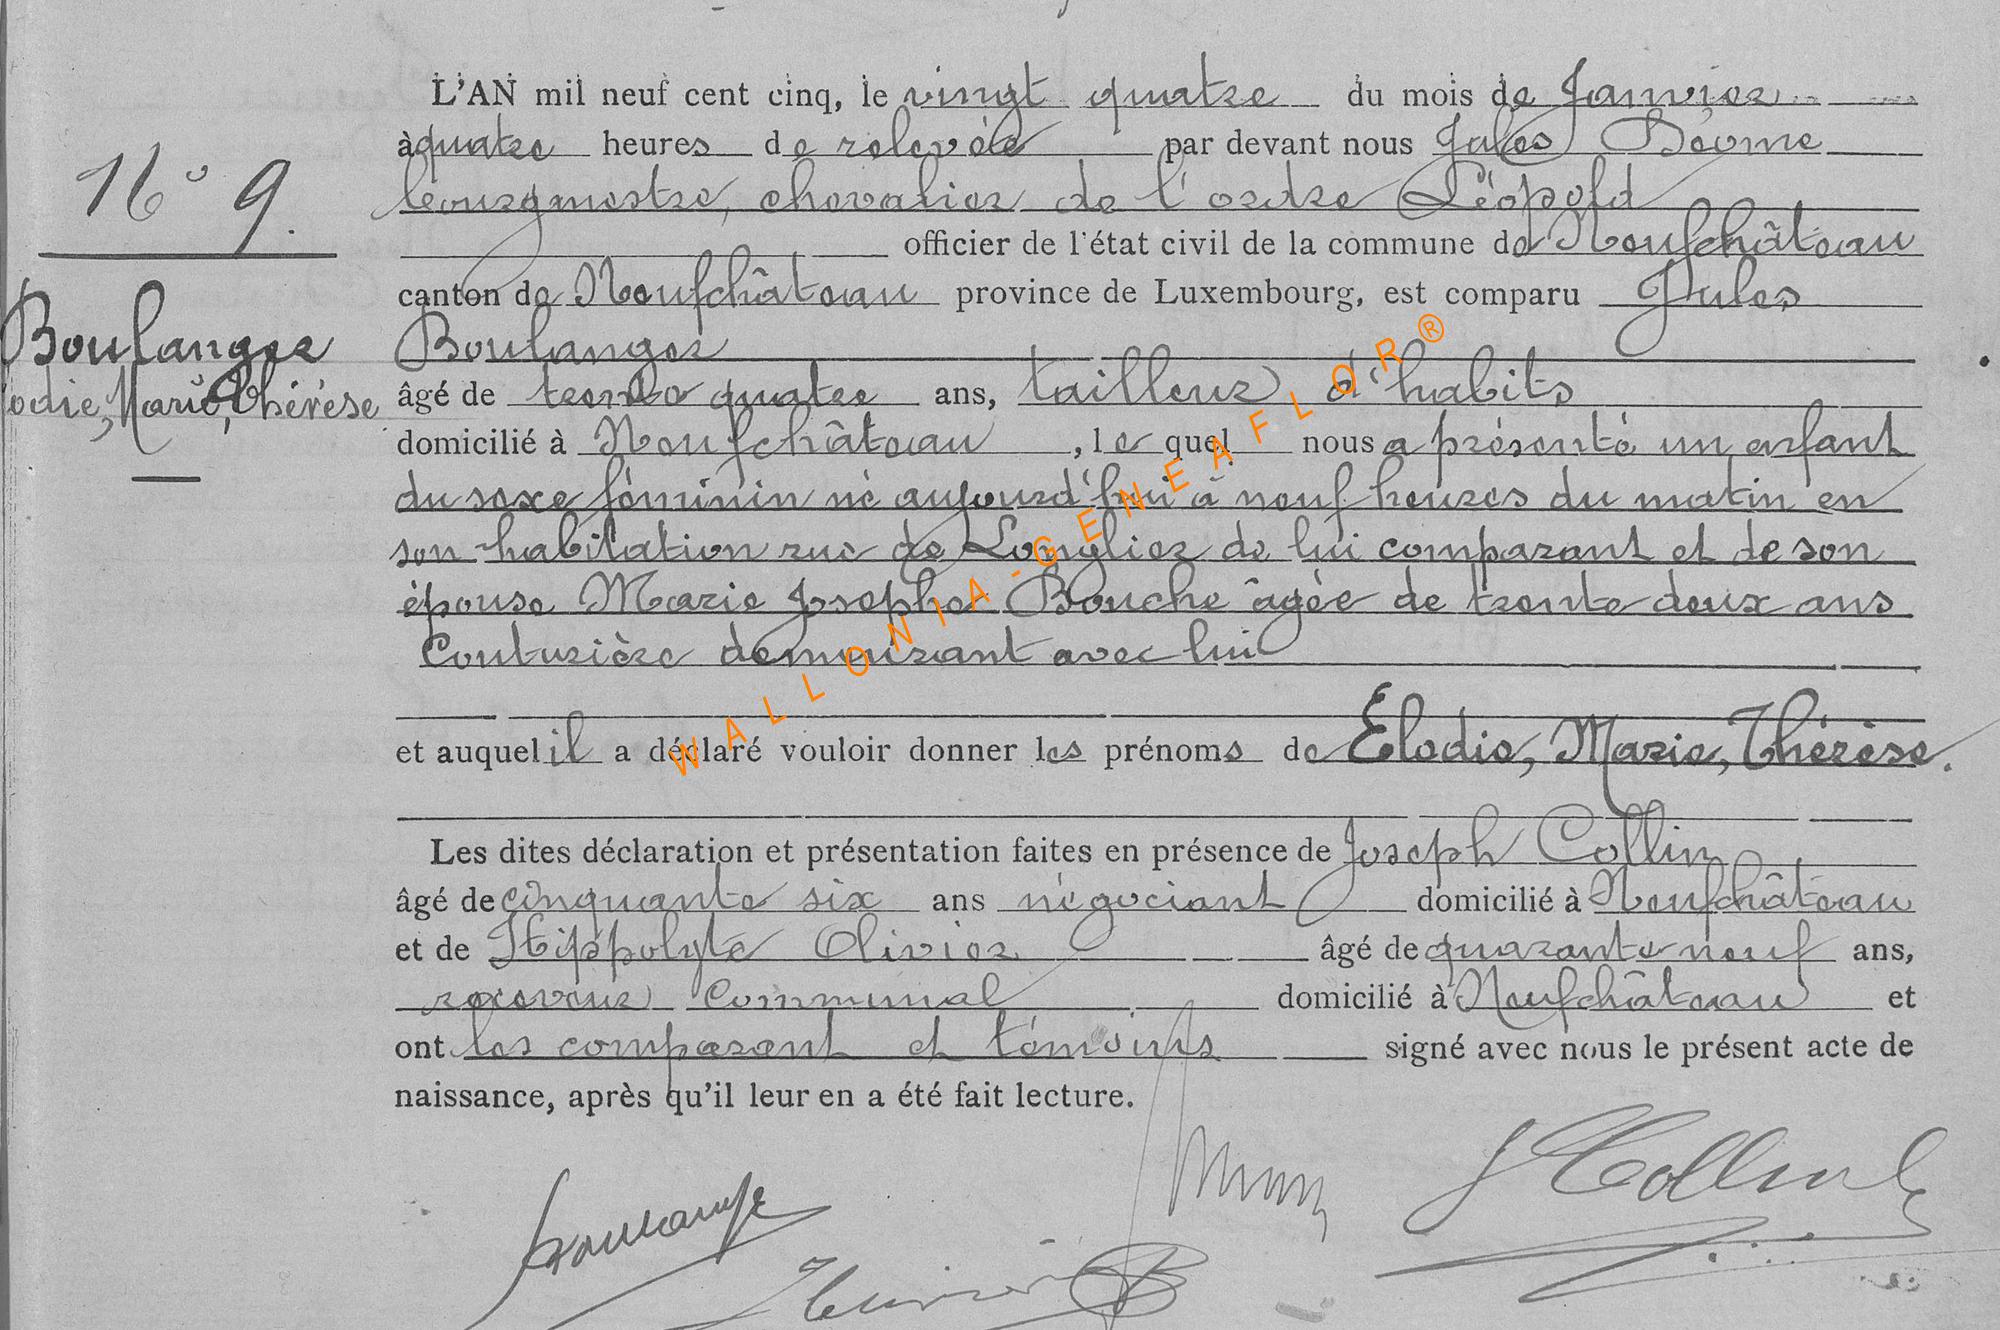 L'AN mil neuf cent cinq, le vingt quatre du mois de Janvier
à quatre heures de relevée par devant nous Jules
bourgmestre, chevalier de l'ordre Léopold
officier de l'état civil de la commune de Neufchâteau
canton de Neufchâteau province de Luxembourg, est comparu Jules
Boulanger
âgé de trente quatre ans, tailleur d'habits
domicilié à Neufchâteau, le quel nous a présenté un enfant
du sexe féminin né aujourd'hui à neuf heures du matin en
son habitation rue de Longlier de lui comparant et de son
épouse Marie Josephe Bouche âgée de trente deux ans
Couturière demeurant avec lui
et auquel il a déclaré vouloir donner les prénoms de Élodie, Marie, Thérèse.
Les dites déclaration et présentation faites en présence de Joseph Collin
âgé de cinquante six ans négociant domicilié à Neufchâteau
et de Hippolyte Olivier âgé de quarante neuf ans,
receveur Communal domicilié à Neufchâteau et
ont les comparant et témoins signé avec nous le présent acte de
naissance, après qu'il leur en a été fait lecture.
N° 9.
Boulanger
lodie, Marie, Thérèse
WALLONIA-GENEAFLOR®
Boulanger
J Collin